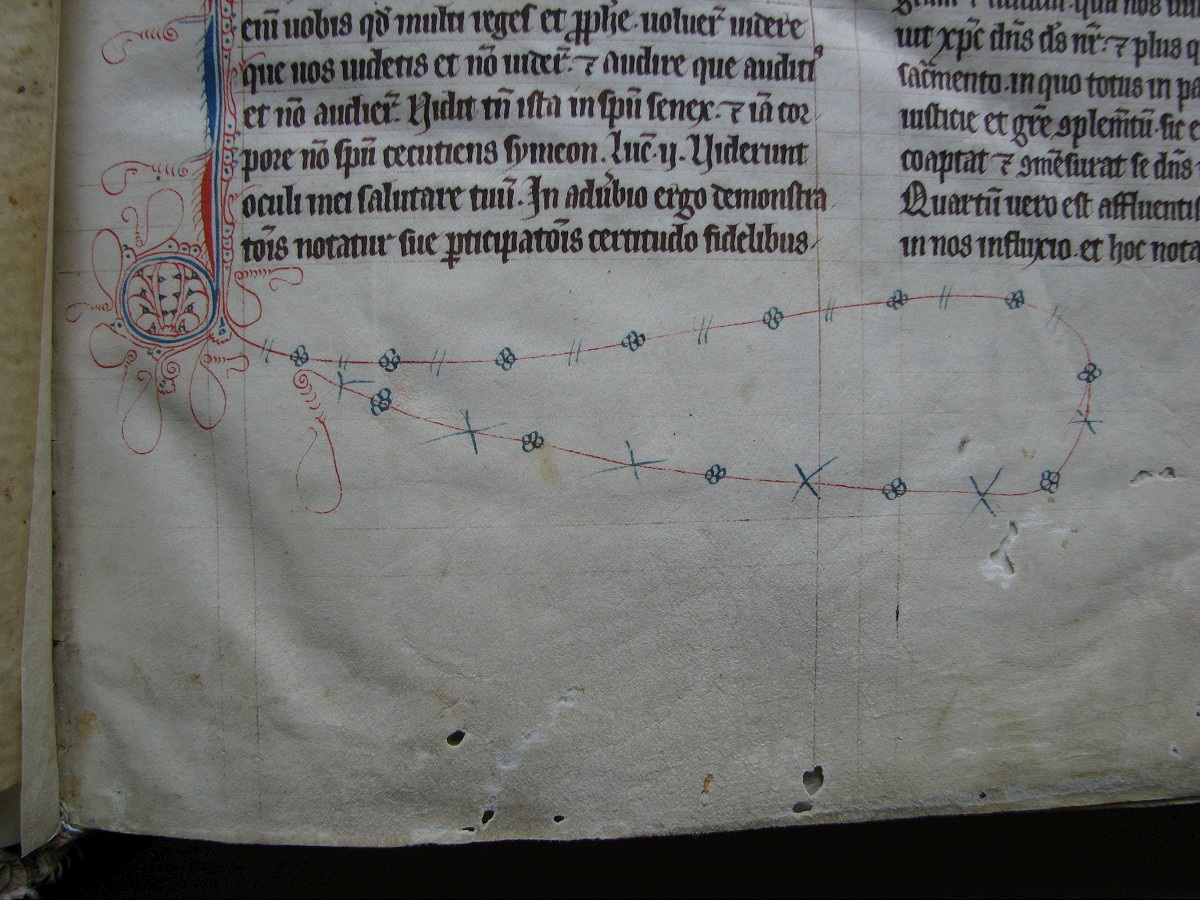 eni̅ uobis qd̅ multi reges et ꝓphe̅. uoluer̅ uidere
que uos uidetis et no̅ uider̅. ⁊ audire que auditis
et no̅ audier̅. Uidit tn̅ ista in spu̅ senex. ⁊ ia̅ cor
pore no̅ spu̅ cecutiens symeon. Luc̅. ij. Uiderunt
oculi mei salutare tuu̅. In aduͥbio ergo demonstra
to̅is notatur sue ꝑticipato̅is certitudo fidelibus
ut xpc̅ dn̅s ds̅ nr̅. ⁊ plus
sac̅mento. in quo totus in
iusticie et gr̅e ꝯplem̅tu̅. sic
coaptat ⁊ ꝯme̅surat se dn̅s
Quartu̅ uero est
in nos influxio. et hoc